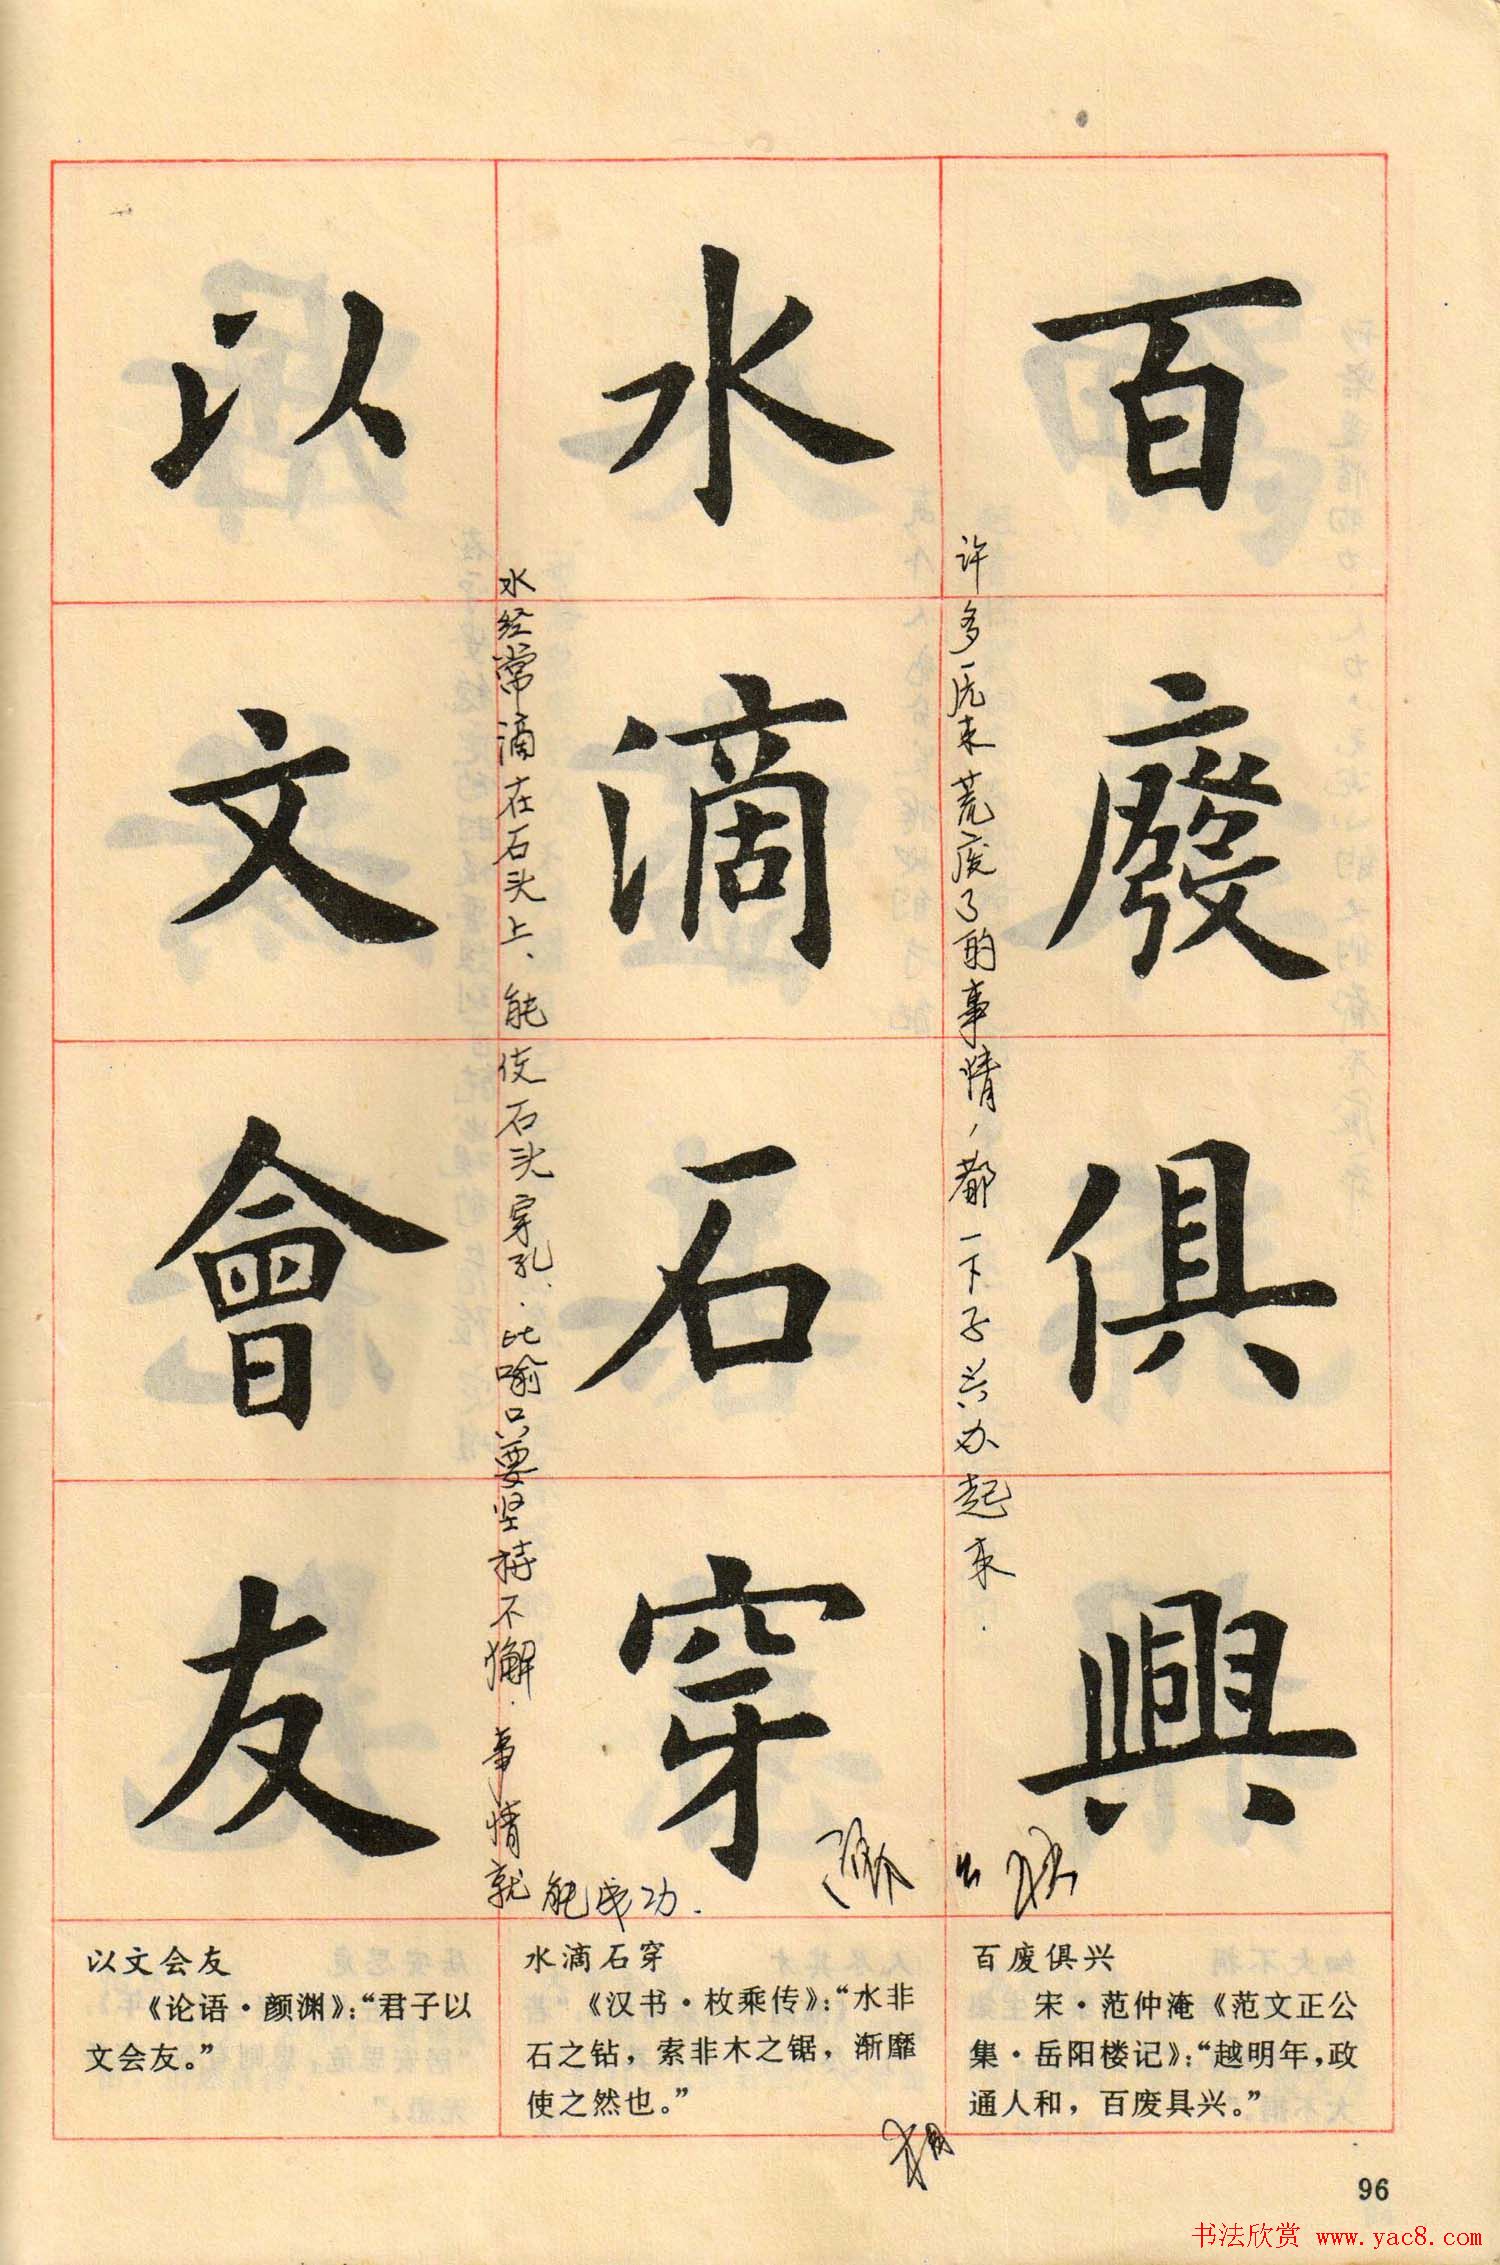 百廢俱興
许多原来荒废了的事情，都一下子兴办起来.
水滴石穿
水经常滴在石头上、能使石头穿孔.比喻只要坚持不懈.事情就
能成功.
以文會友
百废俱兴
宋·范仲淹《范文正公
集·岳阳楼记》：“越明年，政
通人和，百废具兴。”
水滴石穿
《汉书·枚乘传》：“水非
石之钻，索非木之锯，渐靡
使之然也。”
以文会友
《论语·颜渊》：“君子以
文会友。”
96
书法欣赏 www.yac8.com